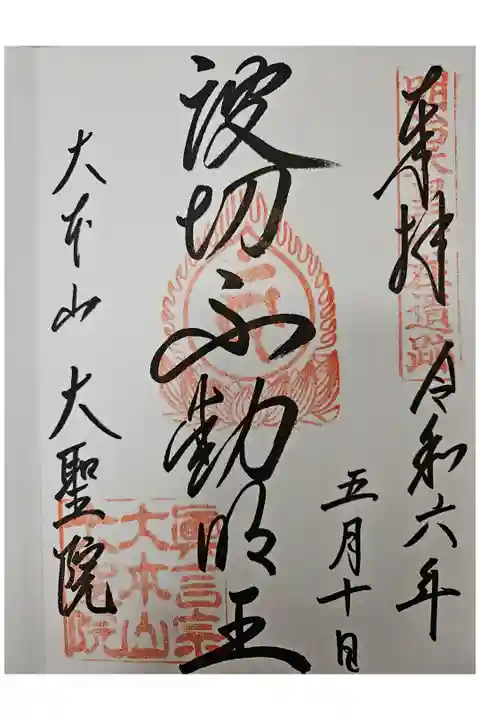 奉拝 令和六年
五月十日
波切不動明王
大本山 大聖院
真言宗
大本山
大聖院